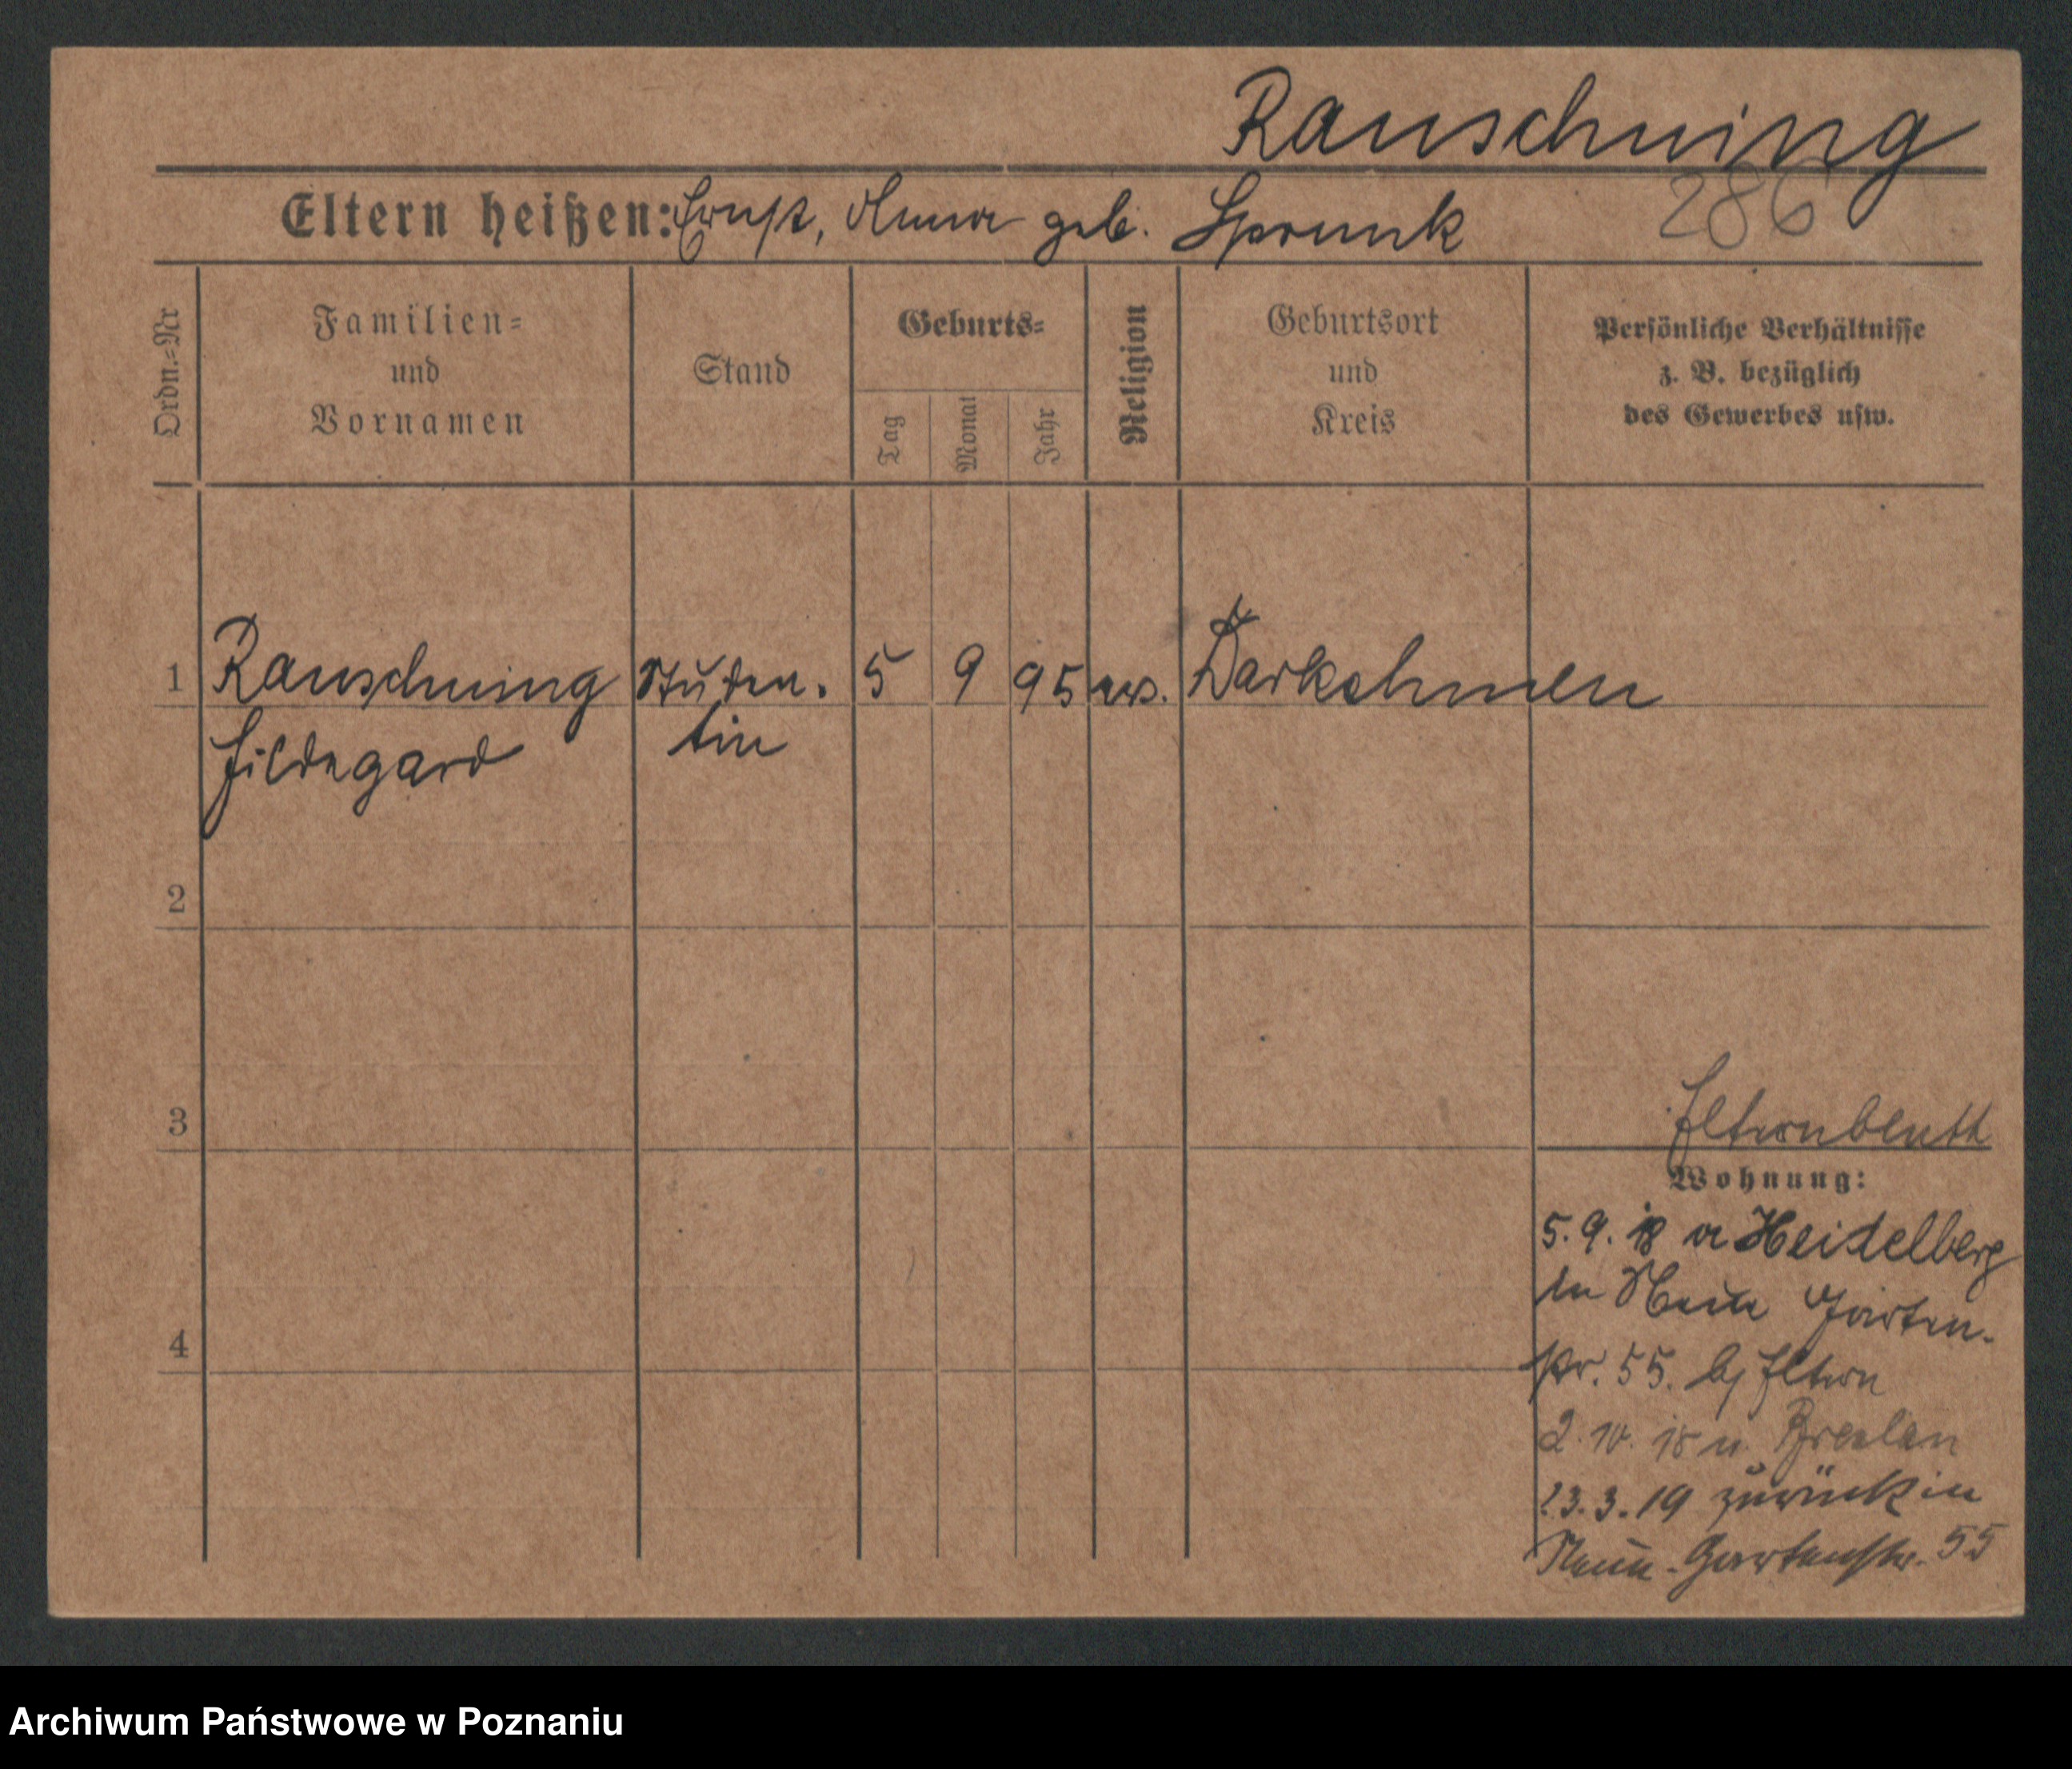 Rauschning
286
Eltern heißen: Ernst, Anna geb. Sprunk
Ordn.=Nr
Familien=
und
Vornamen
Stand
Geburts=
Tag
Monat
Jahr
Religion
Geburtsort
und
Kreis
Persönliche Verhältnisse
z. B. bezüglich
des Gewerbes usw.
1 Rauschning Studen- 5 9 95 ev. Darkehmen
Hildegard tin
2
3
4
Wohnung:
5.9.18 a Heidelberg
in Garten-
str. 55. b/ Eltern
2.10.18 n. Breslau
3.3.19 zurück in
Gartenstr. 55
Archiwum Państwowe w Poznaniu